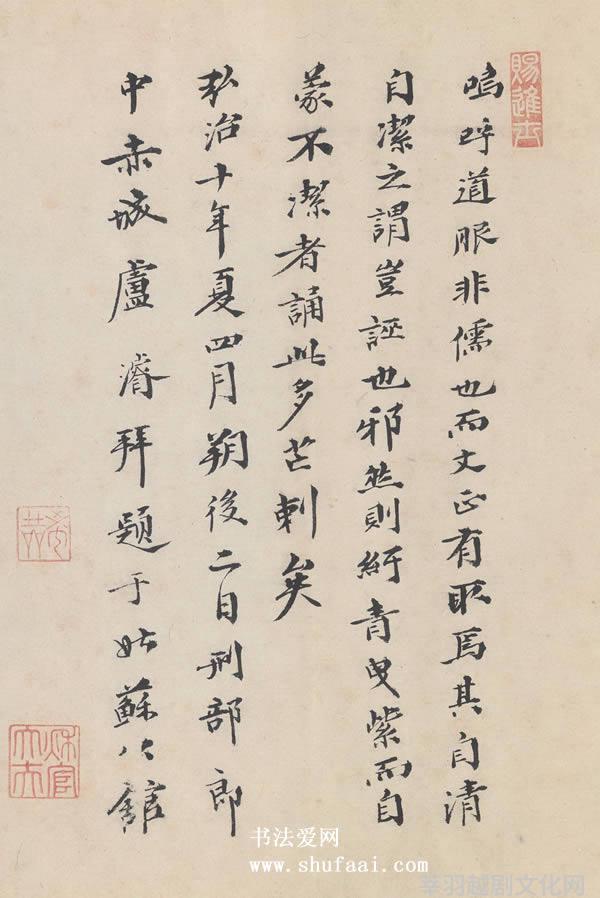 賜進士
嗚呼道服非儒也而文正有取焉其自清
自潔之謂豈誣也邪然則紆青曳紫而自
蒙不潔者誦此多芒刺矣
弘治十年夏四月朔後二日刑部郎
中赤城盧濬拜題于姑蘇公館
希哲
秋官大夫
书法爱网
www.shufaai.com
莘羽越剧文化网